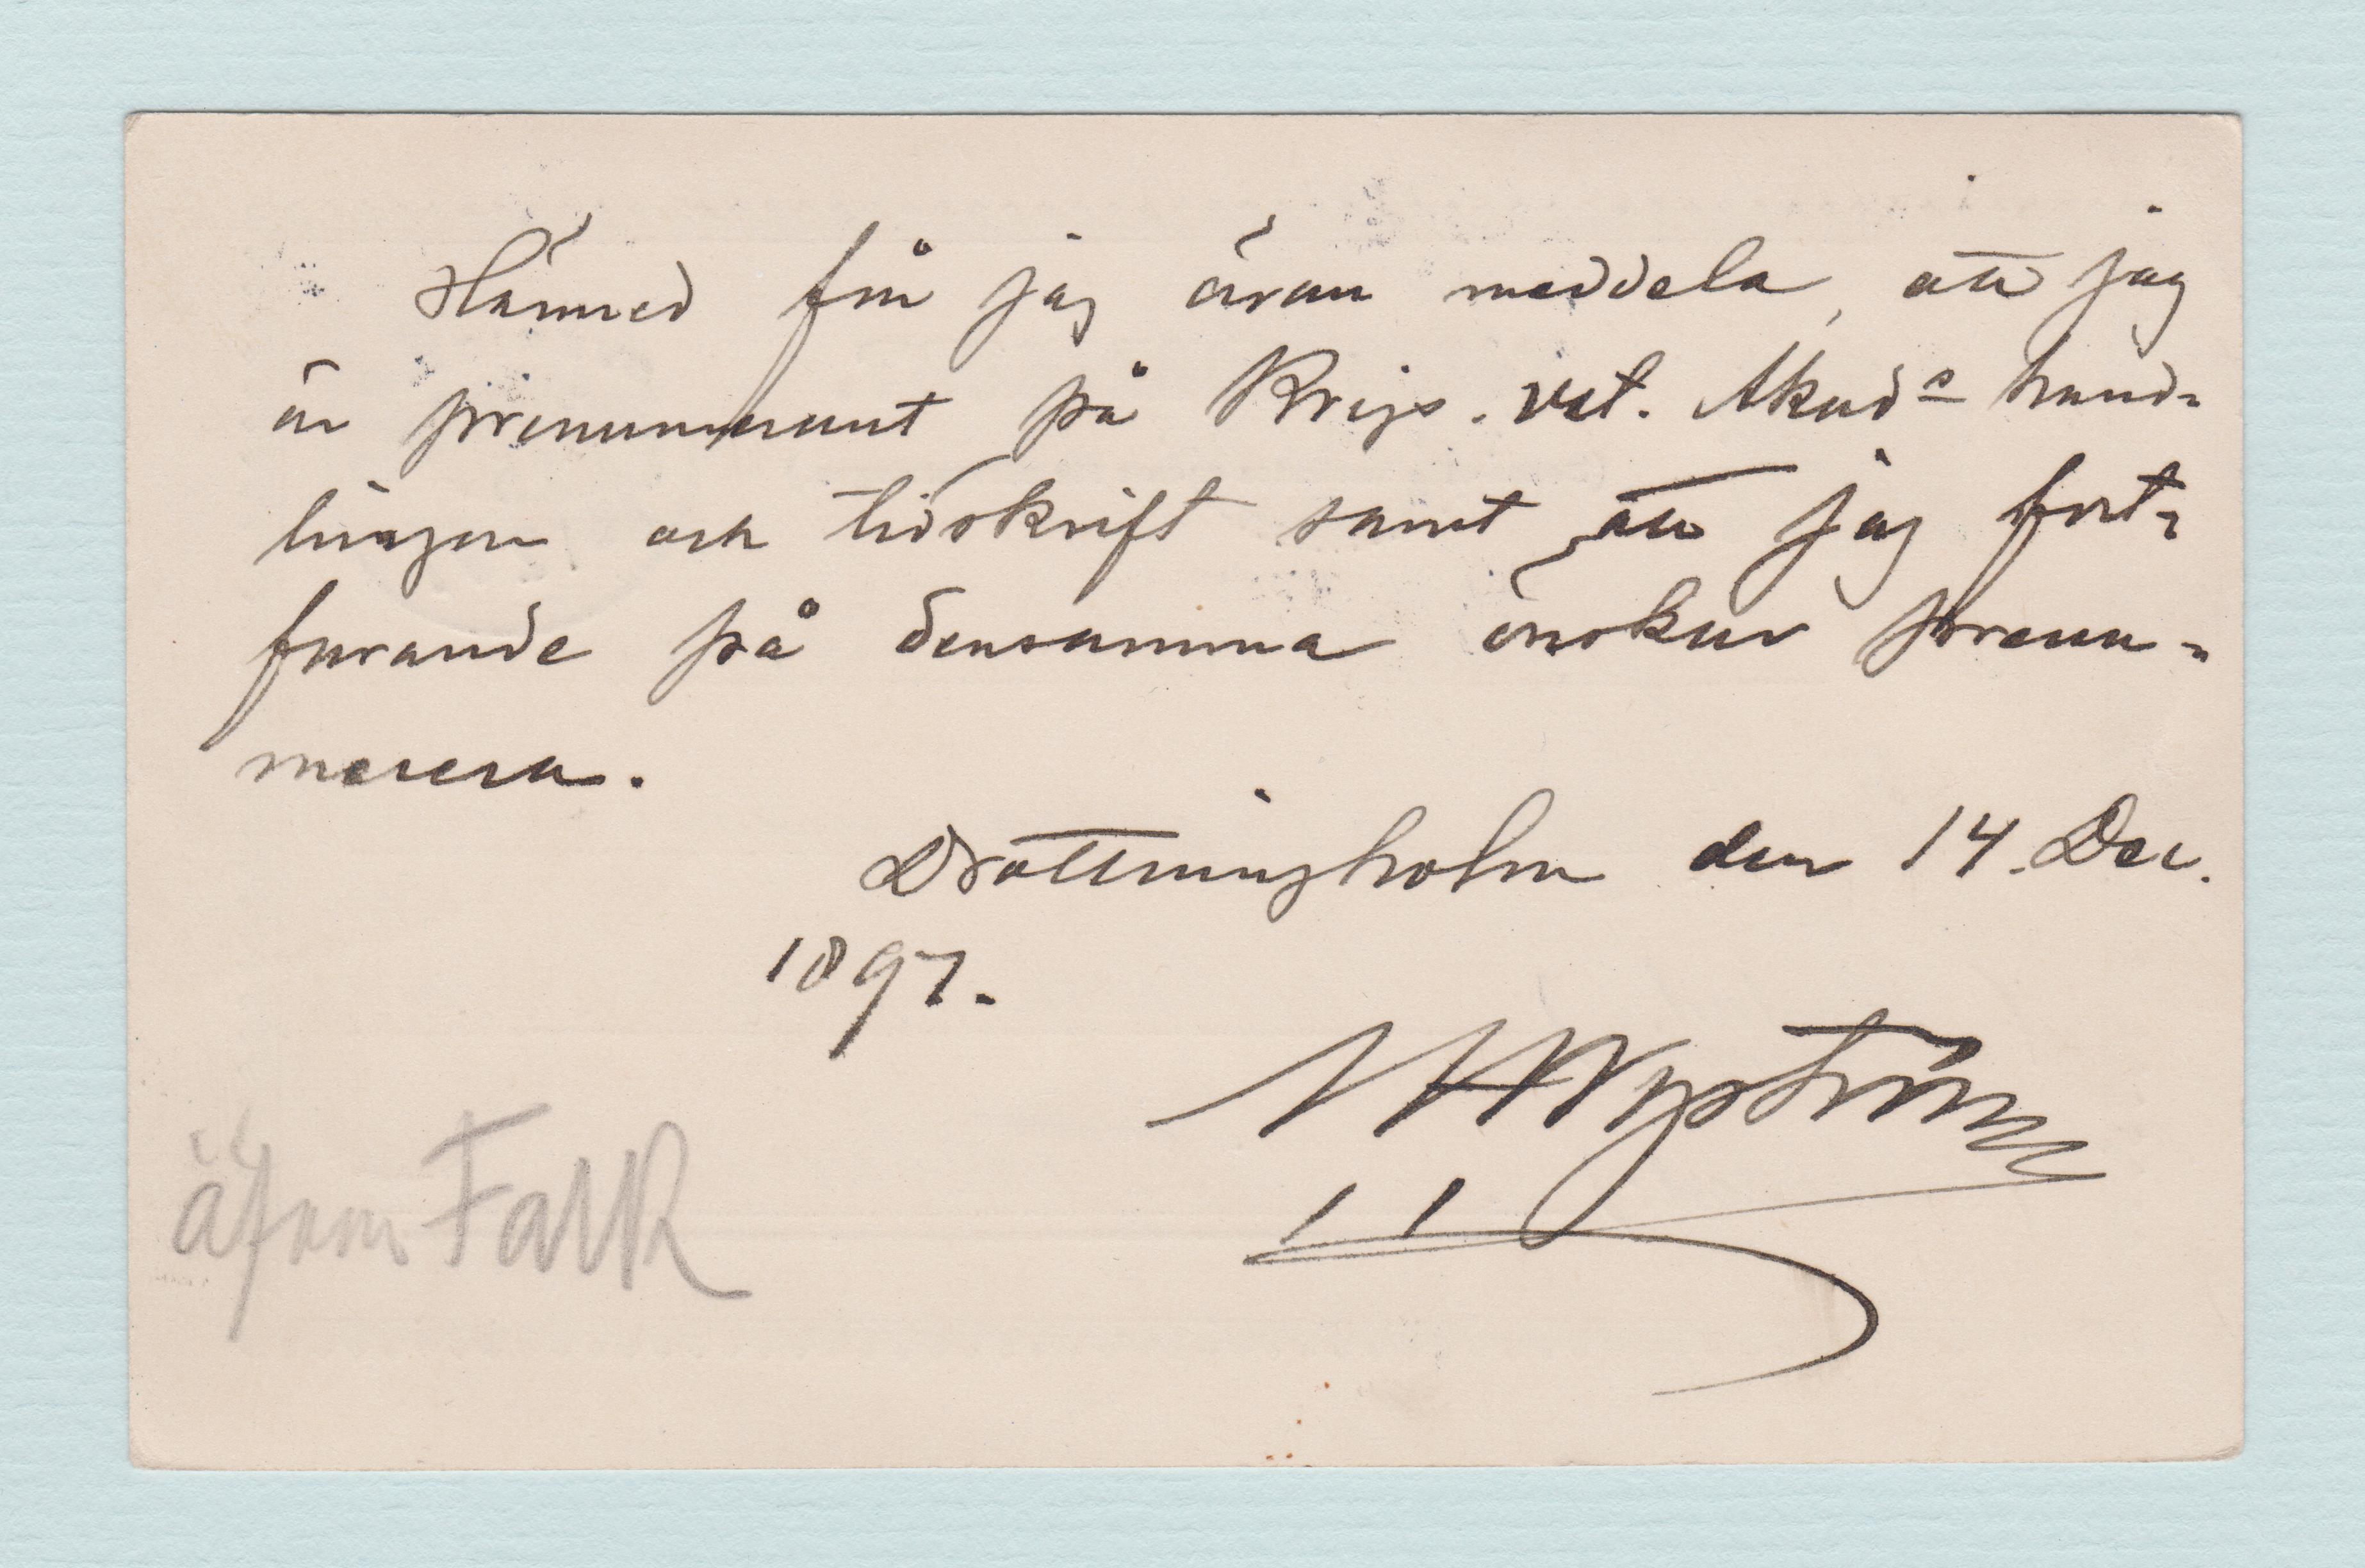 Härmed får jag äran meddela, att jag
är prenummerant på Krigs. vet. Akads hand-
lingar och tidskrift samt att jag fort-
farande på densamma önskar prenu-
merera.
Drottningholm den 14. Dec.
1897.
Nyström
äfven Falk